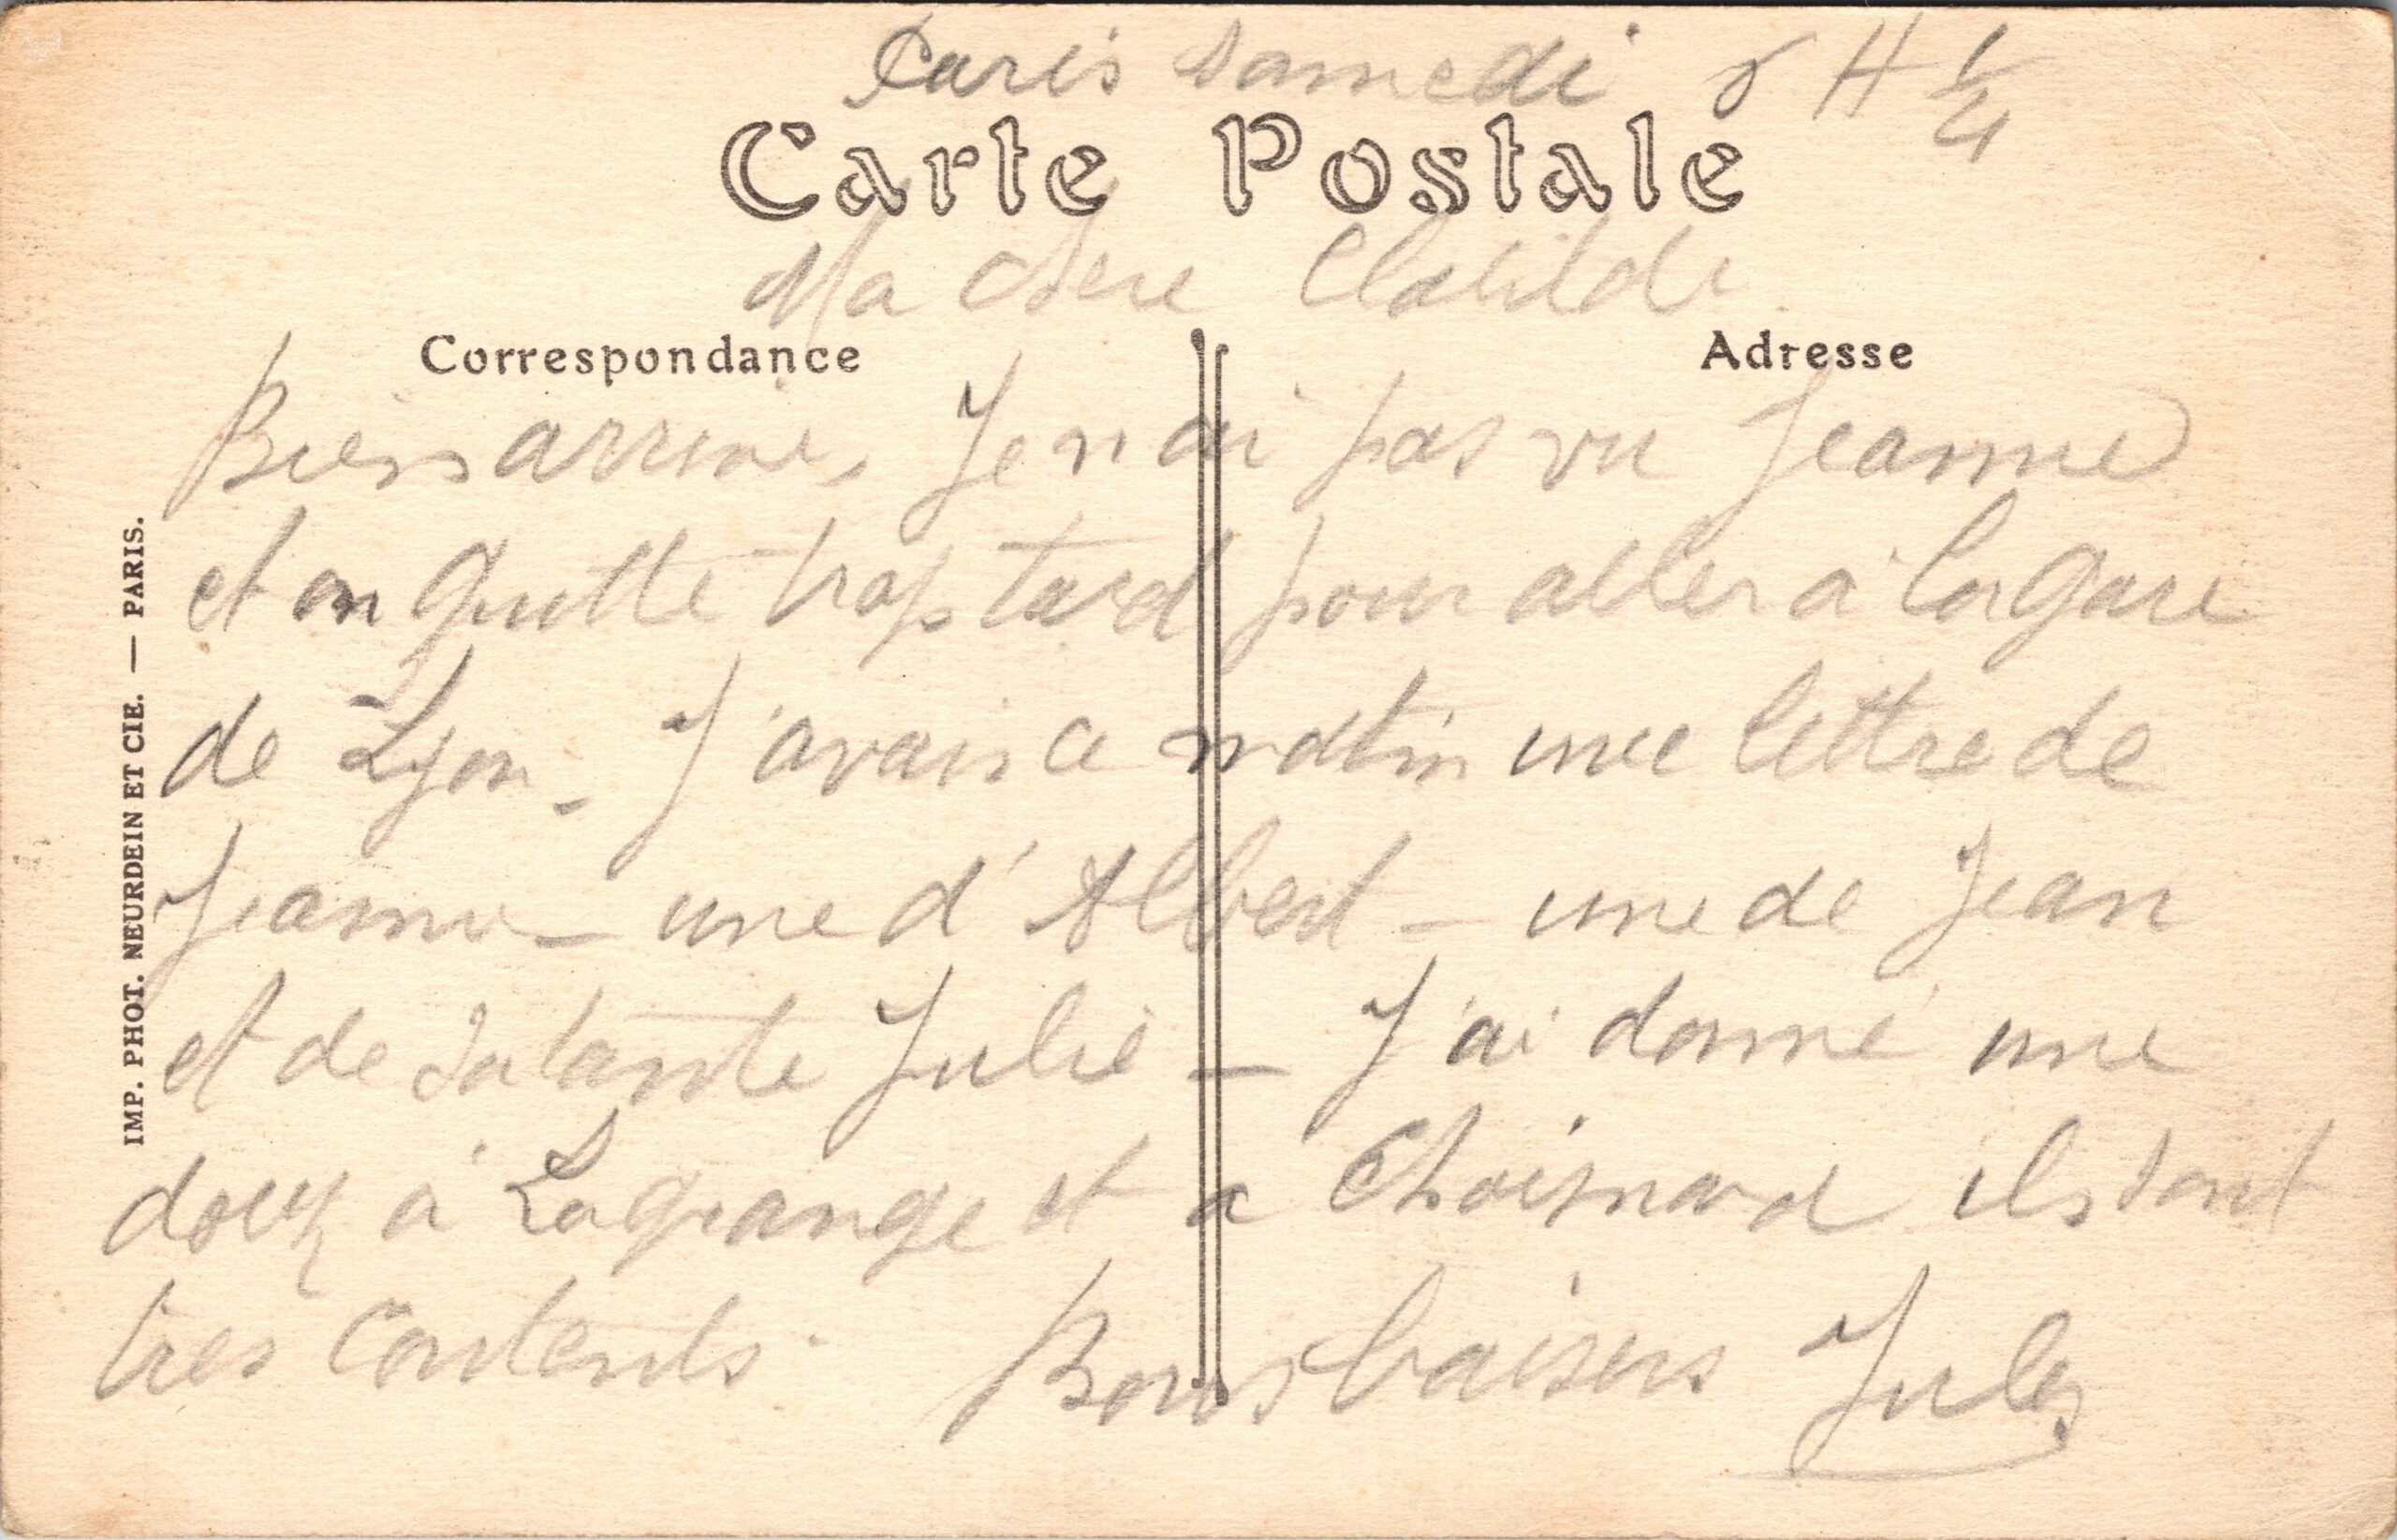 Paris samedi 8 H 1/4
Carte Postale
Ma chere Clotilde
Correspondance
Adresse
Bien arrivé, Je n ai pas vu Jeanne
et on quitte trop tard pour aller à la gare
de Lyon - J'avais ce matin une lettre de
Jeanne - une d'Albert - une de Jean
et de sa tante Julie - J'ai donné une
à Lagrange et à Choisnard ils sont
tres contents. Bons baisers Jules
IMP. PHOT. NEURDEIN ET CIE. — PARIS.